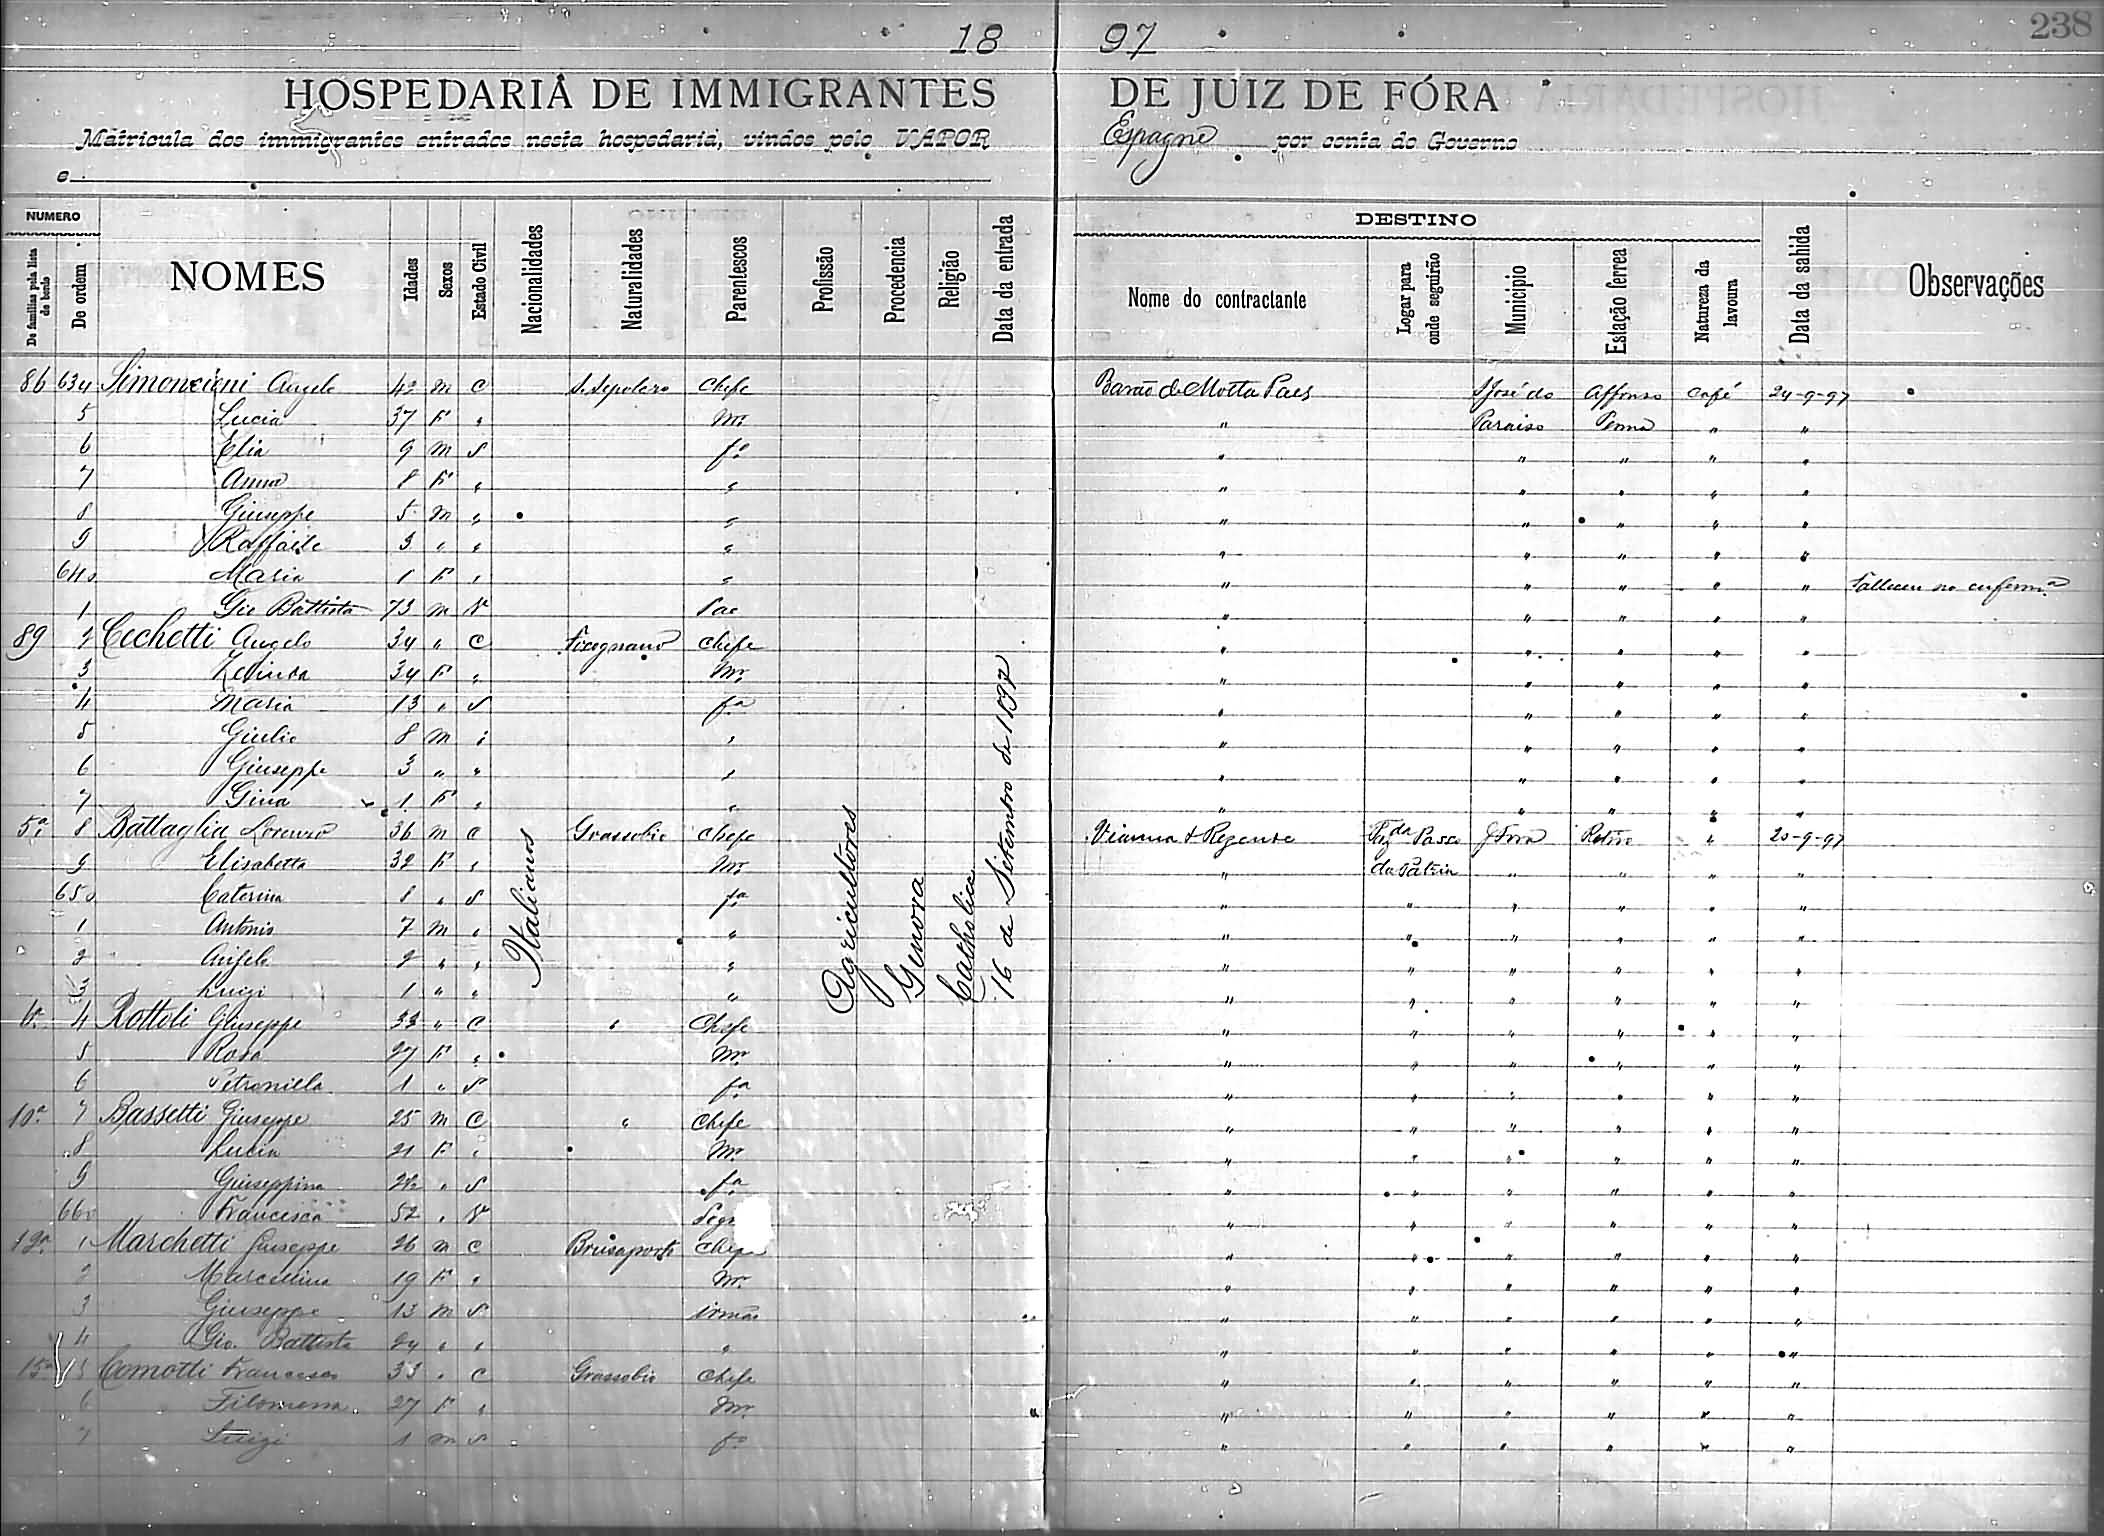 238
18 97
HOSPEDARIA DE IMMIGRANTES DE JUIZ DE FÓRA
Matricula dos immigrantes entrados nesta hospedaria, vindos pelo VAPOR Espagne por conta do Governo
e
NUMERO
De familias pela lista de bordo
De ordem
NOMES
Idades
Sexos
Estado Civil
Nacionalidades
Naturalidades
Parentescos
Profissão
Procedencia
Religião
Data da entrada
DESTINO
Nome do contractante
Logar para onde seguirão
Municipio
Estação ferrea
Natureza da lavoura
Data da sahida
Observações
86 634 Simoncioni Angelo 42 m C S. Sepolcro Chefe Barão de Motta Paes S José do Affonso café 24-9-97
5 Lucia 37 F " Mr. " Paraiso Penna " "
6 Elia 9 m S fo " " " " "
7 Anna 8 F " " " " " " "
8 Giuseppe 5 m " " " " " " "
9 Raffaele 3 " " " " " " " "
640 Maria 1 F " " " " " " " Falleceu na enferma
1 Gio Battista 73 m V Pae " " " " "
89 2 Cechetti Angelo 34 " C Focognano Chefe " " " " "
3 Zelinda 34 F " Mr. " " " " "
4 Maria 13 " S fa " " " " "
5 Giulio 8 m " " " " " " "
6 Giuseppe 3 " " " " " " " "
7 Gina 1 F " " " " " " "
5a 8 Battaglia Lorenzo 36 m C Grassobio Chefe Vianna & Rezende Fazda Passo J Fora Retiro " 20-9-97
9 Elisabetta 32 F " Mr. " da Patria " " " "
650 Caterina 8 " S fa " " " " " "
1 Antonio 7 m " " " " " " " "
2 Angelo 2 " " " " " " " " "
3 Luigi 1 " " " " " " " " "
4 Rottoli Giuseppe 33 " C " Chefe " " " " " "
5 Rosa 27 F " Mr. " " " " " "
6 Petronilla 1 " S fa " " " " " "
10a 7 Bassetti Giuseppe 25 m C " Chefe " " " " " "
8 Lucia 21 F " Mr. " " " " " "
9 Giuseppina " S fa " " " " " "
660 Francesca 52 " V Sogr " " " " " "
12a 1 Marchetti Giuseppe 26 m C Brusaporto Chefe " " " " " "
2 Marcellina 19 F " Mr. " " " " " "
3 Giuseppe 13 m S irmão " " " " " "
4 Gio. Battista 24 " " " " " " " " "
15a 5 Comotti Francesco 33 " C Grassobio Chefe " " " " " "
6 Filomena 27 F " Mr. " " " " " "
7 Luigi 1 m S fo " " " " " "
Italianos
Agricultores
Genova
Catholica
16 de Setembro de 1897